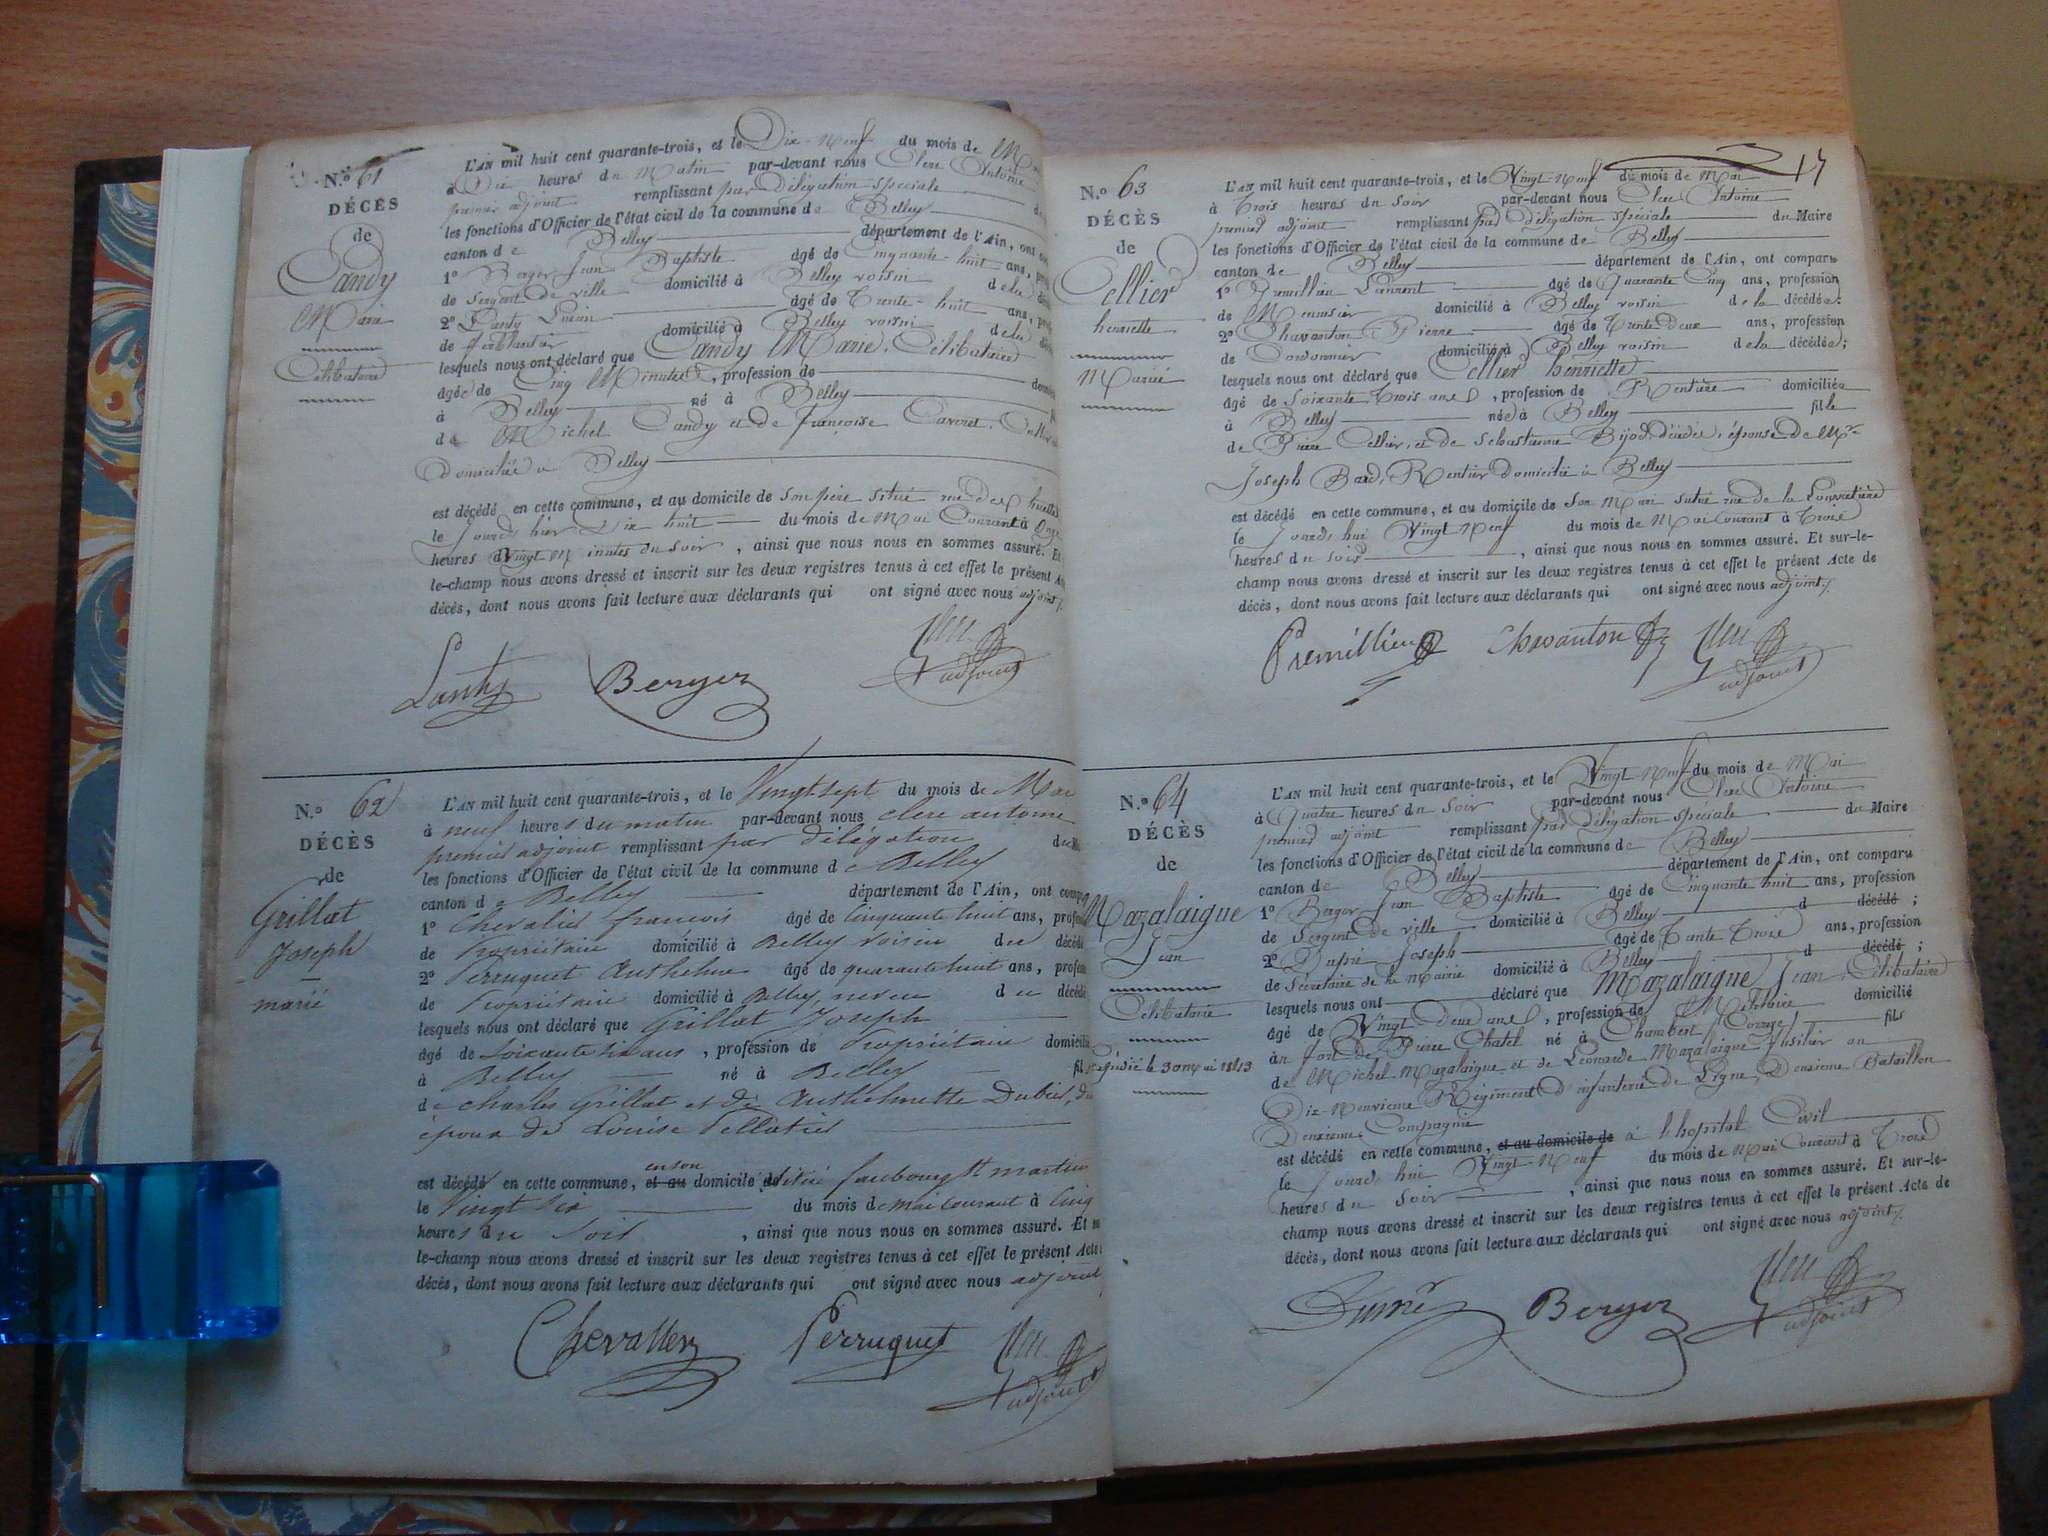 N.o 61
DÉCÈS
de
Candy
Marie
Célibataire
L'AN mil huit cent quarante-trois, et le Dix-Neuf du mois de Mai
à Dix heures du Matin par-devant nous Clerc Antoine
premier adjoint remplissant par délégation spéciale
les fonctions d'Officier de l'état civil de la commune de Belley
canton de Belley département de l'Ain, ont
1o Berger Jean Baptiste âgé de Cinquante-huit ans,
de Sergent de ville domicilié à Belley voisin de la
2o Lanty âgé de Trente-huit ans,
de ferblantier domicilié à Belley voisin de la
lesquels nous ont déclaré que Candy Marie, Célibataire
âgée de Cinq Minutes, profession de
à Belley né à Belley
de Michel Candy et de Françoise
Domiciliée à Belley
est décédé en cette commune, et au domicile de son père situé rue des
le Jourd'hier dix huit du mois de Mai Courant à Onze
heures Vingt Minutes du Soir, ainsi que nous nous en sommes assuré. Et
le-champ nous avons dressé et inscrit sur les deux registres tenus à cet effet le présent
décès, dont nous avons fait lecture aux déclarants qui ont signé avec nous adjoint
Lanty Berger Clerc
adjoint
N.o 62
DÉCÈS
de
Grillat
Joseph
marié
L'AN mil huit cent quarante-trois, et le Vingt-sept du mois de Mai
à neuf heures du matin par-devant nous clerc antoine
premier adjoint remplissant par délégation
les fonctions d'Officier de l'état civil de la commune de Belley
canton de Belley département de l'Ain, ont
1o Chevalier françois âgé de Cinquante huit ans,
de Propriétaire domicilié à Belley voisin du décédé
2o Perruquet Anthelme âgé de quarante huit ans,
de Propriétaire domicilié à Belley, neveu du décédé
lesquels nous ont déclaré que Grillat Joseph
âgé de soixante six ans, profession de Propriétaire domicilié
à Belley né à Belley fils
de Charles Grillat et de Anthelmette Dubiel,
époux de Louise Pellatier
en son
est décédé en cette commune, et au domicile de situé faubourg St martin
le Vingt six du mois de Mai courant à Cinq
heures du Soir, ainsi que nous nous en sommes assuré. Et
le-champ nous avons dressé et inscrit sur les deux registres tenus à cet effet le présent Acte
décès, dont nous avons fait lecture aux déclarants qui ont signé avec nous adjoint
Chevallier Perruquet Clerc
adjoint
17
N.o 63
DÉCÈS
de
Cellier
henriette
Mariée
L'AN mil huit cent quarante-trois, et le Vingt-Neuf du mois de Mai
à Trois heures du Soir par-devant nous Clerc Antoine
premier adjoint remplissant par délégation spéciale du Maire
les fonctions d'Officier de l'état civil de la commune de Belley
canton de Belley département de l'Ain, ont comparu
1o Premillieu Laurent âgé de Quarante Cinq ans, profession
de Menuisier domicilié à Belley voisin de la décédée;
2o Chavanton Pierre âgé de Trente-deux ans, profession
de Cordonnier domicilié à Belley voisin de la décédée;
lesquels nous ont déclaré que Cellier henriette
âgé de Soixante Trois ans, profession de Rentière domiciliée
à Belley née à Belley fille
de Pierre Cellier, et de Sébastienne Bijod, décédés, épouse de Mr
Joseph Bard, Rentier domicilié à Belley
est décédé en cette commune, et au domicile de Son Mari situé rue de la
le Jourd'hui Vingt-Neuf du mois de Mai Courant à Trois
heures du soir, ainsi que nous nous en sommes assuré. Et sur-le-
champ nous avons dressé et inscrit sur les deux registres tenus à cet effet le présent Acte de
décès, dont nous avons fait lecture aux déclarants qui ont signé avec nous adjoint
Premillieu Chavanton Clerc
adjoint
N.o 64
DÉCÈS
de
Mazalaigue
Jean
Célibataire
Expédié le 30 mai 1843
L'AN mil huit cent quarante-trois, et le Vingt-Neuf du mois de Mai
à Quatre heures du Soir par-devant nous Clerc Antoine
premier adjoint remplissant par délégation spéciale du Maire
les fonctions d'Officier de l'état civil de la commune de Belley
canton de Belley département de l'Ain, ont comparu
1o Berger Jean Baptiste âgé de Cinquante huit ans, profession
de Sergent de ville domicilié à Belley d décédé;
2o Dupré Joseph âgé de Trente Trois ans, profession
de Secrétaire de la Mairie domicilié à Belley d décédé;
lesquels nous ont déclaré que Mazalaigue Jean, Célibataire
âgé de Vingt-deux ans, profession de Militaire domicilié
au fort de Pierre Chatel né à Chambert (Corrèze) fils
de Michel Mazalaigue et de Léonarde Mazalaigue, fusilier au
Dix-Neuvième Régiment d'infanterie de Ligne, Deuxième Bataillon
Deuxième Compagnie
est décédé en cette commune, et au domicile de à l'hopital Civil
le Jourd'hui Vingt-Neuf du mois de Mai Courant à Trois
heures du Soir, ainsi que nous nous en sommes assuré. Et sur-le-
champ nous avons dressé et inscrit sur les deux registres tenus à cet effet le présent Acte de
décès, dont nous avons fait lecture aux déclarants qui ont signé avec nous adjoint
Dupré Berger Clerc
adjoint